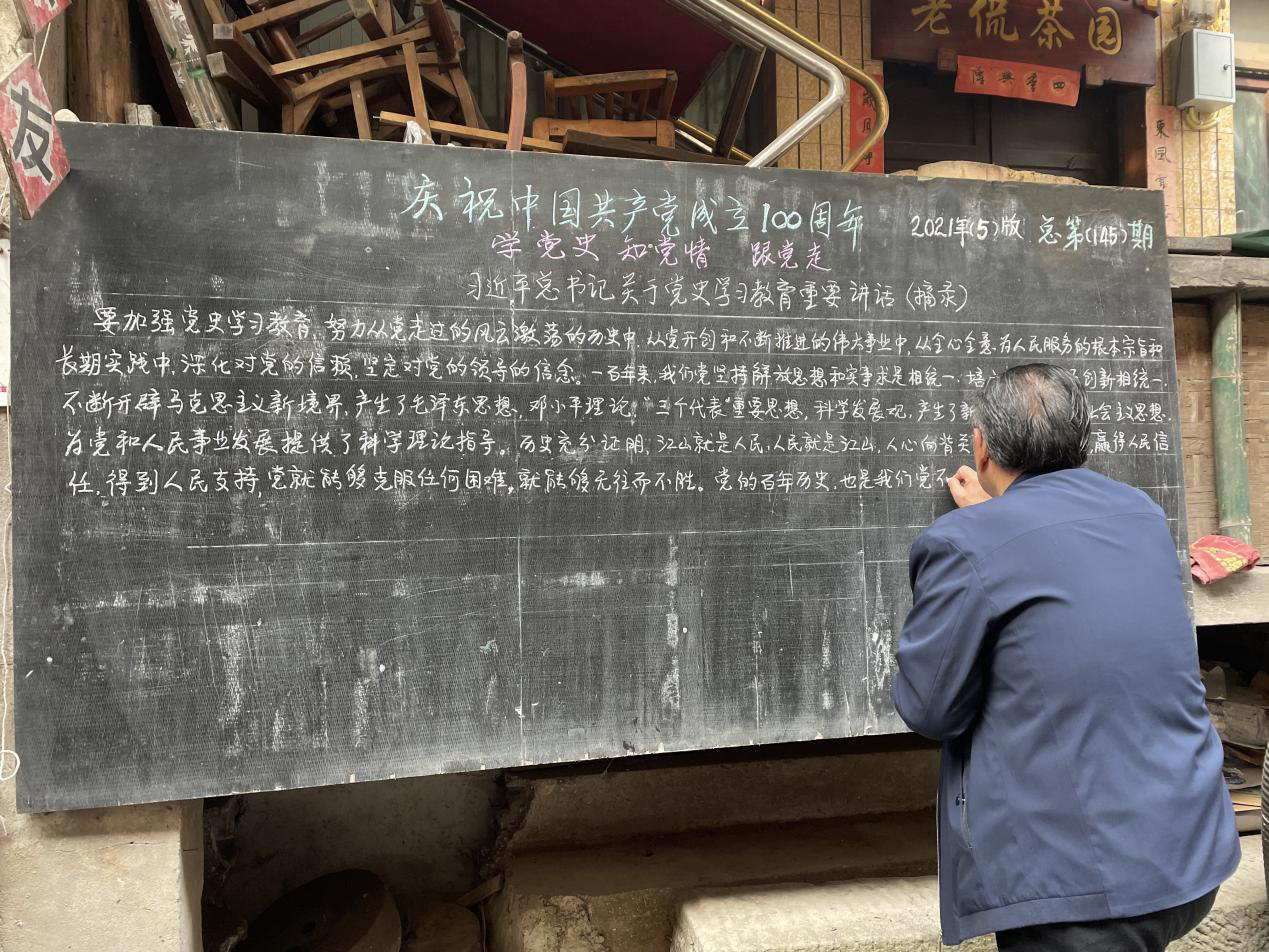 友
老侃茶园
四季興隆
東風
庆祝中国共产党成立100周年
2021年(5)版 总第(145)期
学党史 知党情 跟党走
习近平总书记关于党史学习教育重要讲话(摘录)
要加强党史学习教育,努力从党走过的风云激荡的历史中,从党开创和不断推进的伟大事业中,从全心全意为人民服务的根本宗旨和
长期实践中,深化对党的信赖,坚定对党的领导的信念。一百年来,我们党坚持解放思想和实事求是相统一、培 创新相统一,
不断开辟马克思主义新境界,产生了毛泽东思想、邓小平理论、"三个代表"重要思想、科学发展观,产生了新 社会主义思想,
为党和人民事业发展提供了科学理论指导。历史充分证明,江山就是人民,人民就是江山,人心向背 赢得人民信
任,得到人民支持,党就能够克服任何困难,就能够无往而不胜。党的百年历史,也是我们党不